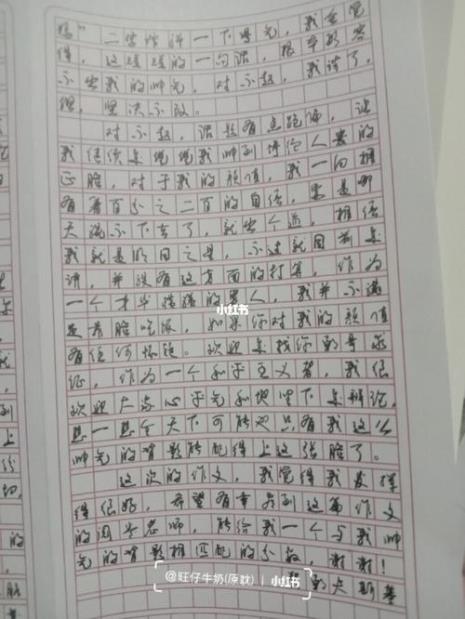 ”二字惜许一下
得，这短短的一句话，根本形容
不出我的帅气，对不起，我错了，
但，坚决不改。
对不起，话题有点跑偏，让
我继续来说说我帅到惨绝人寰的
正脸，对于我的颜值，我一向拥
有着百分之二百的自信，要是哪
天混不下去了，就出个道，相信
我就是明日之星，不过就目前来
讲，并没有这方面的打算，作为
一个才华横溢的男人，我并不满
足靠脸吃饭，如果你对我的颜值
有任何怀疑。欢迎来找你的哥求
证，作为一个和平主义者，我很
欢迎大家心平气和地坐下来辩论，
想一想全天下可能也只有我这么
帅气的背影能配得上这张脸了。
这次的作文，我觉得我发挥
得很好，希望有幸看到这篇作文
的阅卷老师，能给我一个与我帅
气的背影相匹配的分数，谢谢！
小红书
@旺仔牛奶(原耽) | 小红书